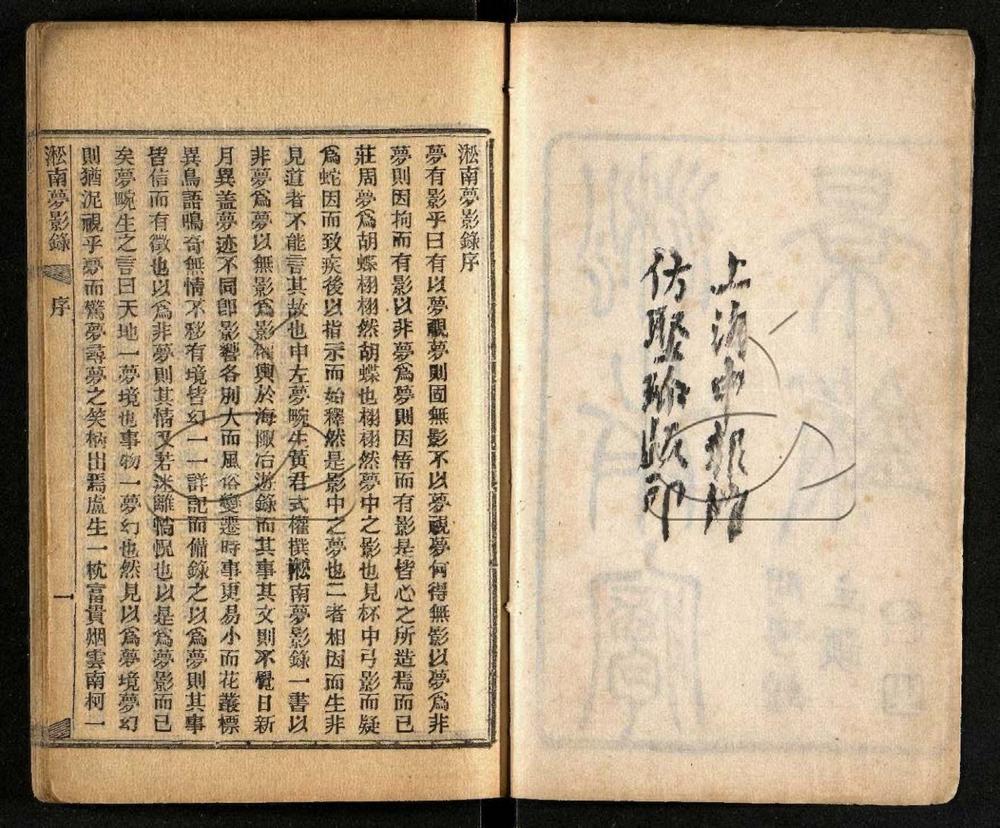 上海申報館
仿聚珍版印
淞南夢影錄序
夢有影乎曰有以夢視夢則固無影不以夢視夢何得無影以夢爲非
夢則因拘而有影以非夢爲夢則因悟而有影是皆心之所造焉而已
莊周夢爲胡蝶栩栩然胡蝶也栩栩然夢中之影也見杯中弓影而疑
爲蛇因而致疾後以指示而始釋然是影中之夢也二者相因而生非
見道者不能言其故也申左夢畹生黃君式權撰淞南夢影錄一書以
非夢爲夢以無影爲影權輿於海陬冶游錄而其事其文則不覺日新
月異蓋夢迹不同卽影響各別大而風俗變遷時事更易小而花叢標
異鳥語鳴奇無情不移有境皆幻一一詳記而備錄之以爲夢則其事
皆信而有徵也以爲非夢則其情又若迷離惝怳也以是爲夢影而已
矣夢畹生之言曰天地一夢境也事物一夢幻也然見以爲夢境夢幻
則猶泥視乎夢而驚夢尋夢之笑柄出焉盧生一枕富貴烟雲南柯一
淞南夢影錄 序 一